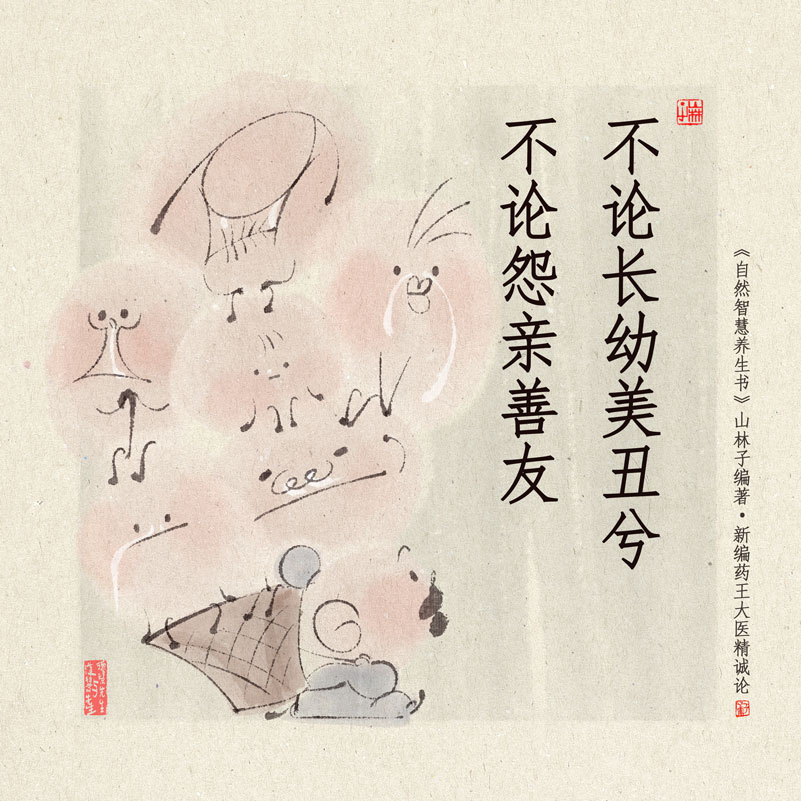 不论长幼美丑兮
不论怨亲善友
《自然智慧养生书》山林子编著·新编药王大医精诚论